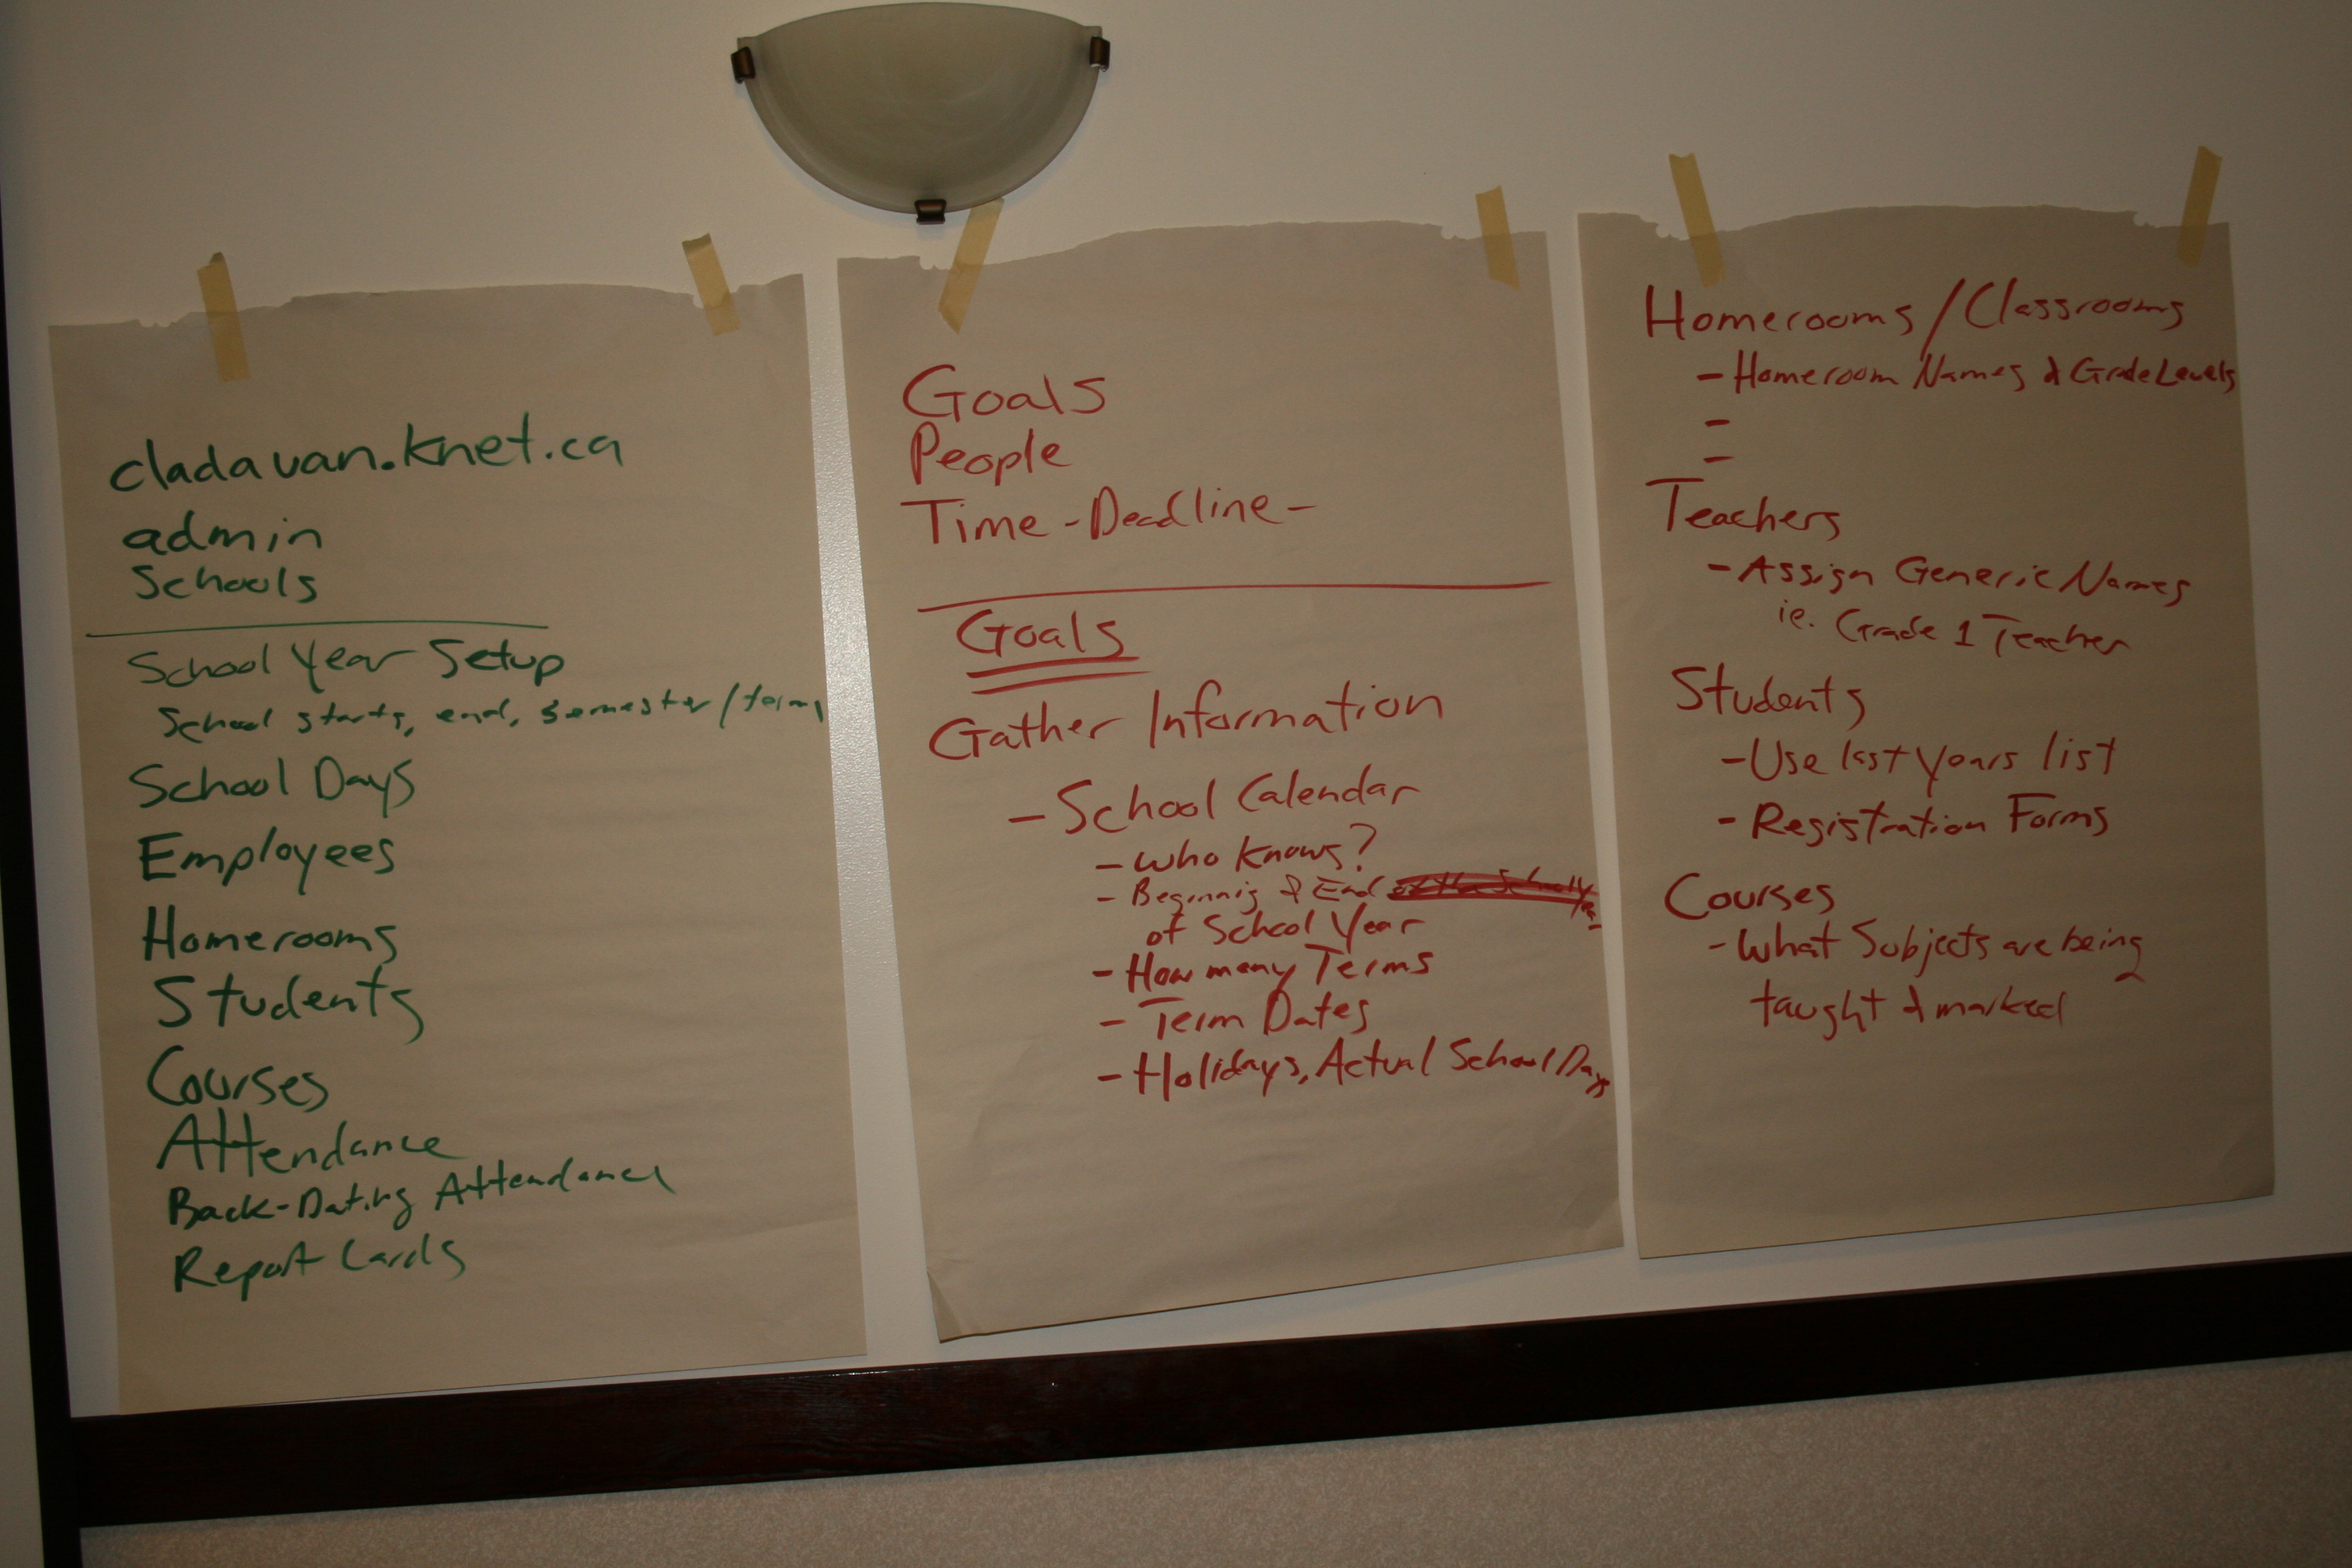 cladavan.knet.ca
admin
Schools
School Year Setup
School starts, end, semester/terms
School Days
Employees
Homerooms
Students
Courses
Attendance
Back-Dating Attendance
Report Cards
Goals
People
Time - Deadline -
Goals
Gather Information
- School Calendar
- Who Knows?
- Beginnig & End of the School Year
of School Year
- How many Terms
- Term Dates
- Holidays, Actual School Days
Homerooms/Classrooms
- Homeroom Names & Grade Levels
-
-
Teachers
- Assign Generic Names
ie. Grade 1 Teacher
Students
- Use last years list
- Registration Forms
Courses
- What Subjects are being
taught & marked